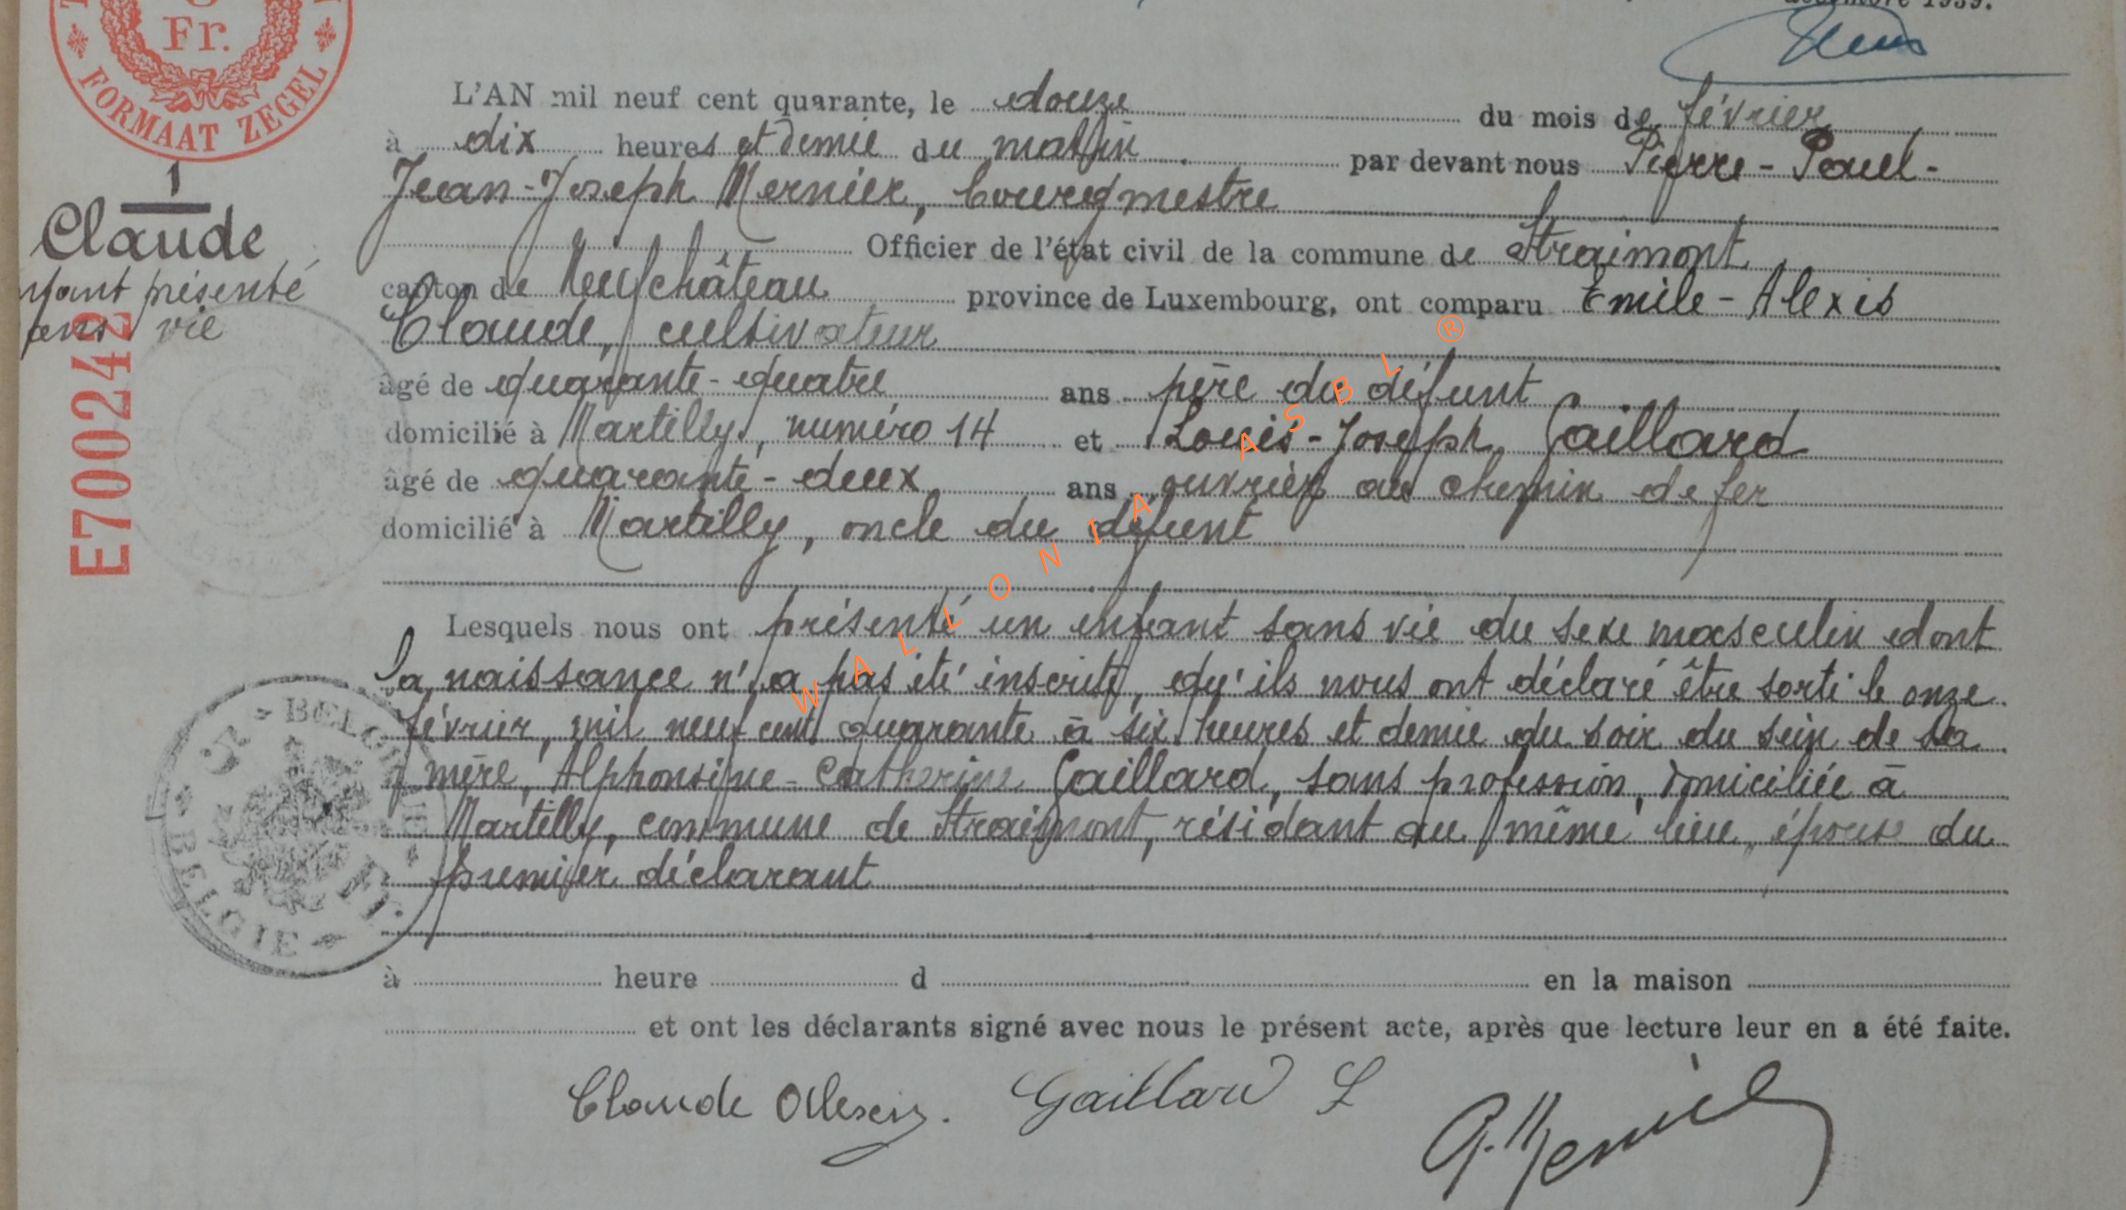 décembre 1939.
Fr.
FORMAAT ZEGEL
L'AN mil neuf cent quarante, le douze du mois de février
à dix heures et demie du matin par devant nous Pierre-Paul-
Jean-Joseph Mernier, Bourgmestre
Officier de l'état civil de la commune de Straimont
canton de Neufchâteau province de Luxembourg, ont comparu Emile-Alexis
Claude, cultivateur
âgé de quarante-quatre ans père du défunt
domicilié à Martilly, numéro 14 et Louis-Joseph Gaillard
âgé de quarante-deux ans ouvrier au chemin de fer
domicilié à Martilly, oncle du défunt
Lesquels nous ont présenté un enfant sans vie du sexe masculin dont
la naissance n'a pas été inscrite, qu'ils nous ont déclaré être sorti le onze
février, mil neuf cent quarante à six heures et demie du soir du sein de sa
mère, Alphonsine-Catherine Gaillard, sans profession, domiciliée à
Martilly, commune de Straimont, résidant au même lieu, épouse du
premier déclarant
à heure d en la maison
et ont les déclarants signé avec nous le présent acte, après que lecture leur en a été faite.
Claude Alexis. Gaillard L
P. Mernier
1
Claude
nfant présenté
sans vie
E700242
BELGIQUE
BELGIE
Fr.
WALLONIA ASBL ®